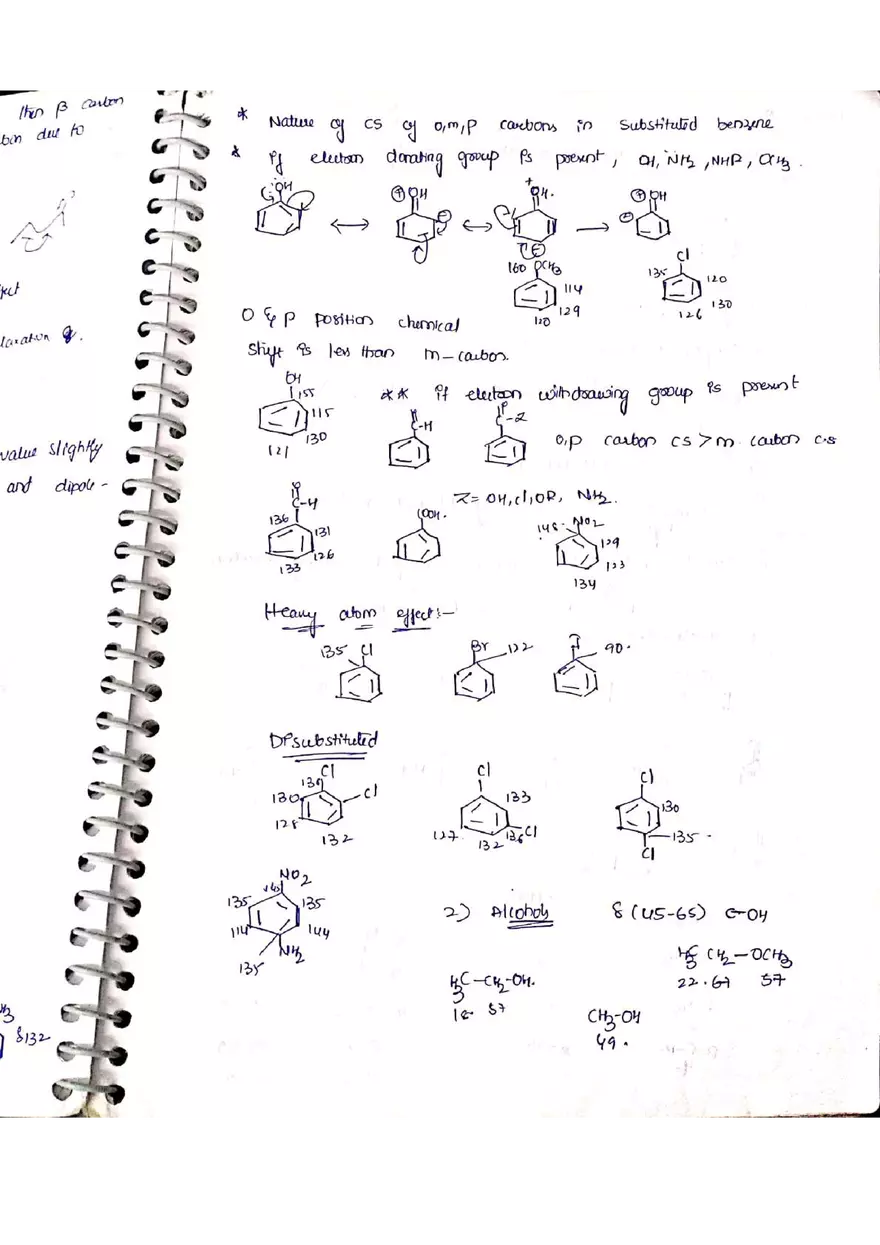 then β carbon
due to
value slightly
and dipole-
δ132
* Nature of CS of o,m,p carbons in substituted benzene
* if electron donating group is present, OH, NH2, NHR, OCH3.
:OH
⊕OH
+OH.
⊕OH
160 OCH3
114
129
120
Cl
135
120
130
126
O & p position chemical
shift is less than m-carbon.
OH
155
115
130
121
** if electron withdrawing group is present
C-H
C-Z
o,p carbon CS > m carbon c.s
Z = OH, Cl, OR, NH2.
C-H
136
131
126
133
COOH.
148 NO2
129
123
134
Heavy atom effect:-
135 Cl
Br 122
I 90.
Disubstituted
Cl
130
Cl
132
Cl
133
127
132
136
Cl
Cl
130
135.
Cl
NO2
135
135
114
144
NH2
135
2) Alcohols δ (45-65) C-OH
H3C CH2-OCH3
22.67 57
H3C-CH2-OH.
18 57
CH3-OH
49.